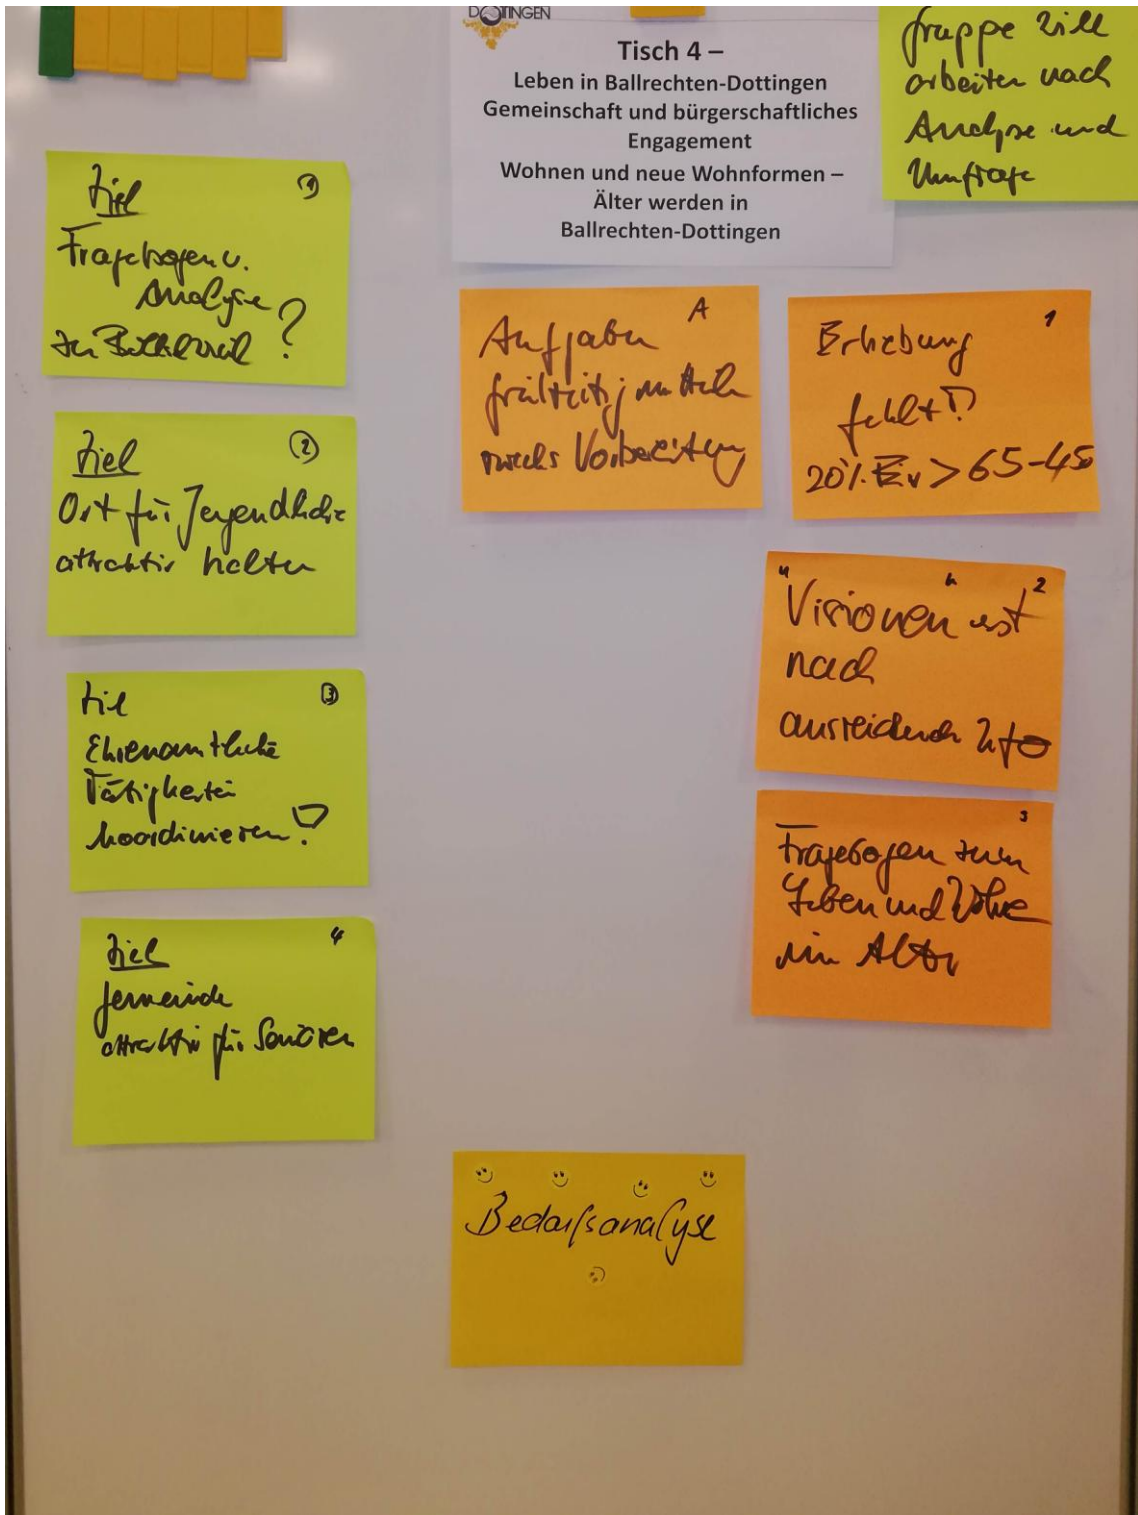 DOTTINGEN
Tisch 4 –
Leben in Ballrechten-Dottingen
Gemeinschaft und bürgerschaftliches
Engagement
Wohnen und neue Wohnformen –
Älter werden in
Ballrechten-Dottingen
Gruppe will
arbeiten nach
Analyse und
Umfrage
Ziel 1
Fragebogen u.
Analyse
zu ?
Ziel 2
Ort für Jugendliche
attraktiv halten
Ziel 3
Ehrenamtliche
Tätigkeiten
koordinieren!
Ziel 4
Gemeinde
attraktiv für Senioren
A
Aufgaben
frühzeitig mitteilen
zwecks Vorbereitung
Erhebung 1
fehlt!?
20% > 65-45
"Visionen" erst 2
nach
ausreichender Info
3
Fragebogen zum
Leben und Wohnen
im Alter
Bedarfsanalyse